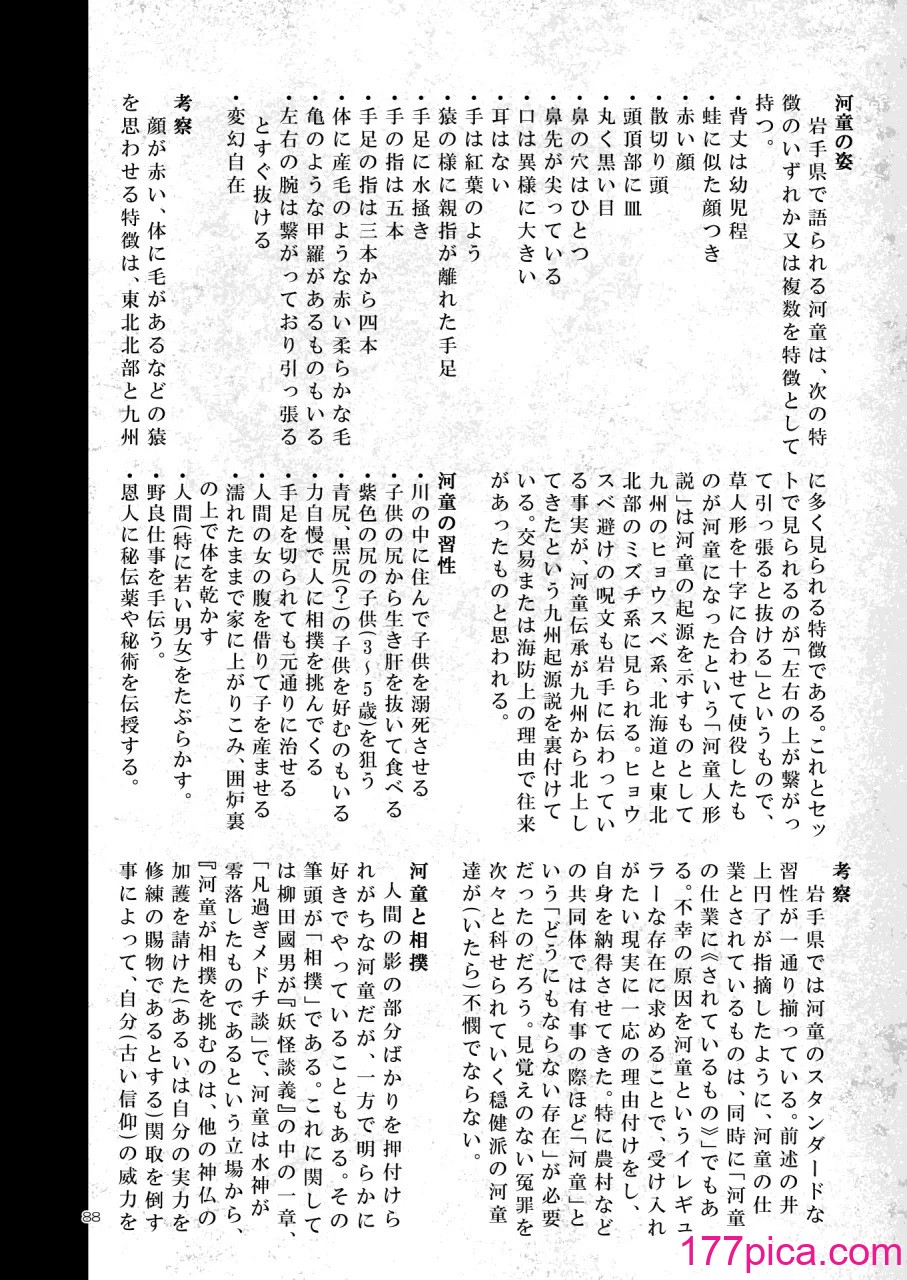 河童の姿
岩手県で語られる河童は、次の特
徴のいずれか又は複数を特徴として
持つ。
・背丈は幼児程
・蛙に似た顔つき
・赤い顔
・散切り頭
・頭頂部に皿
・丸く黒い目
・鼻の穴はひとつ
・鼻先が尖っている
・口は異様に大きい
・耳はない
・手は紅葉のよう
・猿の様に親指が離れた手足
・手足に水掻き
・手の指は五本
・手足の指は三本から四本
・体に産毛のような赤い柔らかな毛
・亀のような甲羅があるものもいる
・左右の腕は繋がっており引っ張る
とすぐ抜ける
・変幻自在
考察
顔が赤い、体に毛があるなどの猿
を思わせる特徴は、東北北部と九州
に多く見られる特徴である。これとセッ
トで見られるのが「左右の上が繋がっ
て引っ張ると抜ける」というもので、
草人形を十字に合わせて使役したも
のが河童になったという「河童人形
説」は河童の起源を示すものとして
九州のヒョウスベ系、北海道と東北
北部のミズチ系に見られる。ヒョウ
スベ避けの呪文も岩手に伝わってい
る事実が、河童伝承が九州から北上し
てきたという九州起源説を裏付けて
いる。交易または海防上の理由で往来
があったものと思われる。
河童の習性
・川の中に住んで子供を溺死させる
・子供の尻から生き肝を抜いて食べる
・紫色の尻の子供(3〜5歳)を狙う
・青尻、黒尻(?)の子供を好むのもいる
・力自慢で人に相撲を挑んでくる
・手足を切られても元通りに治せる
・人間の女の腹を借りて子を産ませる
・濡れたままで家に上がりこみ、囲炉裏
の上で体を乾かす
・人間(特に若い男女)をたぶらかす。
・野良仕事を手伝う。
・恩人に秘伝薬や秘術を伝授する。
考察
岩手県では河童のスタンダードな
習性が一通り揃っている。前述の井
上円了が指摘したように、河童の仕
業とされているものは、同時に「河童
の仕業に《されているもの》」でもあ
る。不幸の原因を河童というイレギュ
ラーな存在に求めることで、受け入れ
がたい現実に一応の理由付けをし、
自身を納得させてきた。特に農村など
の共同体では有事の際ほど「河童」と
いう「どうにもならない存在」が必要
だったのだろう。見覚えのない冤罪を
次々と科せられていく穏健派の河童
達が(いたら)不憫でならない。
河童と相撲
人間の影の部分ばかりを押付けら
れがちな河童だが、一方で明らかに
好きでやっていることもある。その
筆頭が「相撲」である。これに関して
は柳田國男が『妖怪談義』の中の一章、
「凡過ぎメドチ談」で、河童は水神が
零落したものであるという立場から、
『河童が相撲を挑むのは、他の神仏の
加護を請けた(あるいは自分の実力を
修練の賜物であるとする)関取を倒す
事によって、自分(古い信仰)の威力を
88
177pica.com